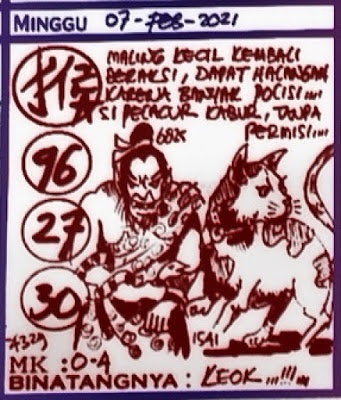 MINGGU 07-FEB-2021
MALING KECIL KEMBALI
BERAKSI, DAPAT HALANGAN
KARENA BANYAK POLISI....
SI PELACUR KABUR, TANPA
PERMISI....
6825
96
27
30
4329
1541
MK : 0-4
BINATANGNYA : KEOK...!!!...